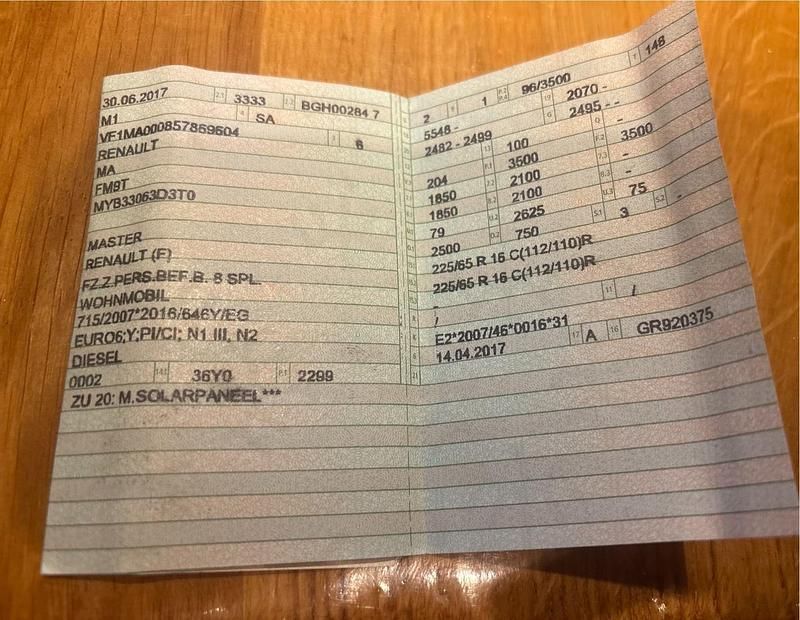 30.06.2017 2.1 3333 2.2 BGH00284 7
M1 4 SA
VF1MA000857869604 3 6
RENAULT
MA
FM9T
MYB33063D3T0
MASTER
RENAULT (F)
FZ.Z.PERS.BEF.B. 8 SPL.
WOHNMOBIL
715/2007*2016/646Y/EG
EURO6;Y;PI/CI; N1 III, N2
DIESEL
0002 14.1 36Y0 P.1 2299
ZU 20: M.SOLARPANEEL***
2 9 1 P.2 P.4 96/3500 T 148
5548 - 19 2070 -
2482 - 2499 G 2495 - -
204 13 100 Q -
1850 7.1 3500 F.2 3500
1850 7.2 2100 7.3 -
79 8.2 2100 8.3 -
2500 U.2 2625 U.3 75
O.2 750 S.1 3 S.2 -
225/65 R 16 C(112/110)R
225/65 R 16 C(112/110)R
-
/ 11 /
E2*2007/46*0016*31
14.04.2017 17 A 16 GR920375
21